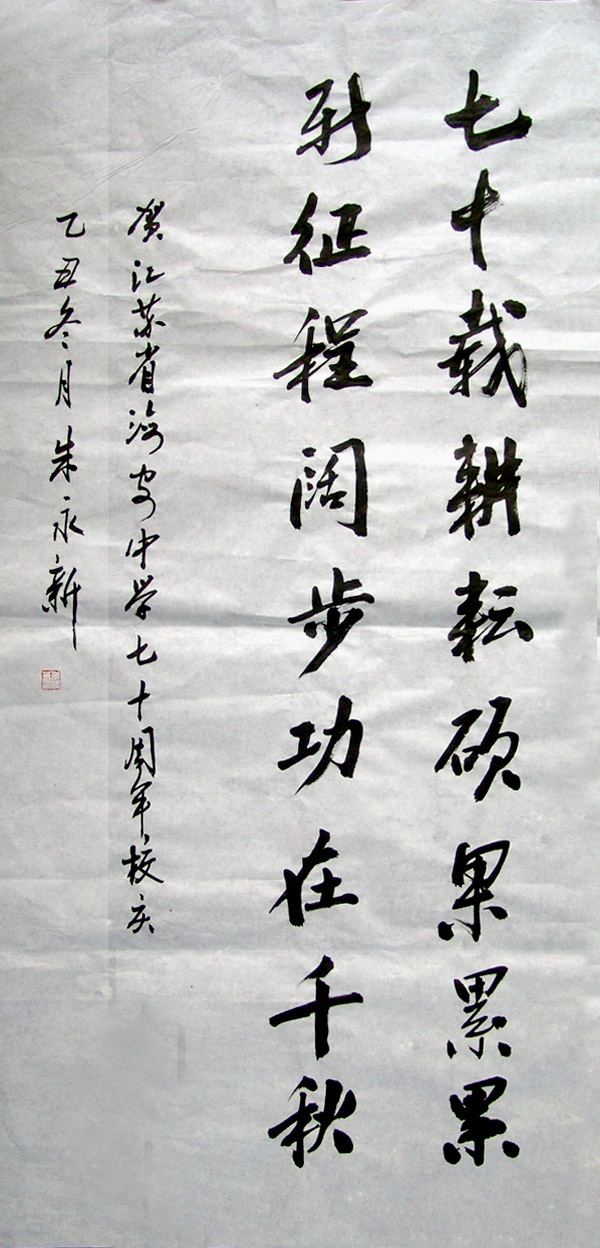 七十载耕耘硕果累累
新征程阔步功在千秋
贺江苏省海安中学七十周年校庆
乙丑冬月朱永新